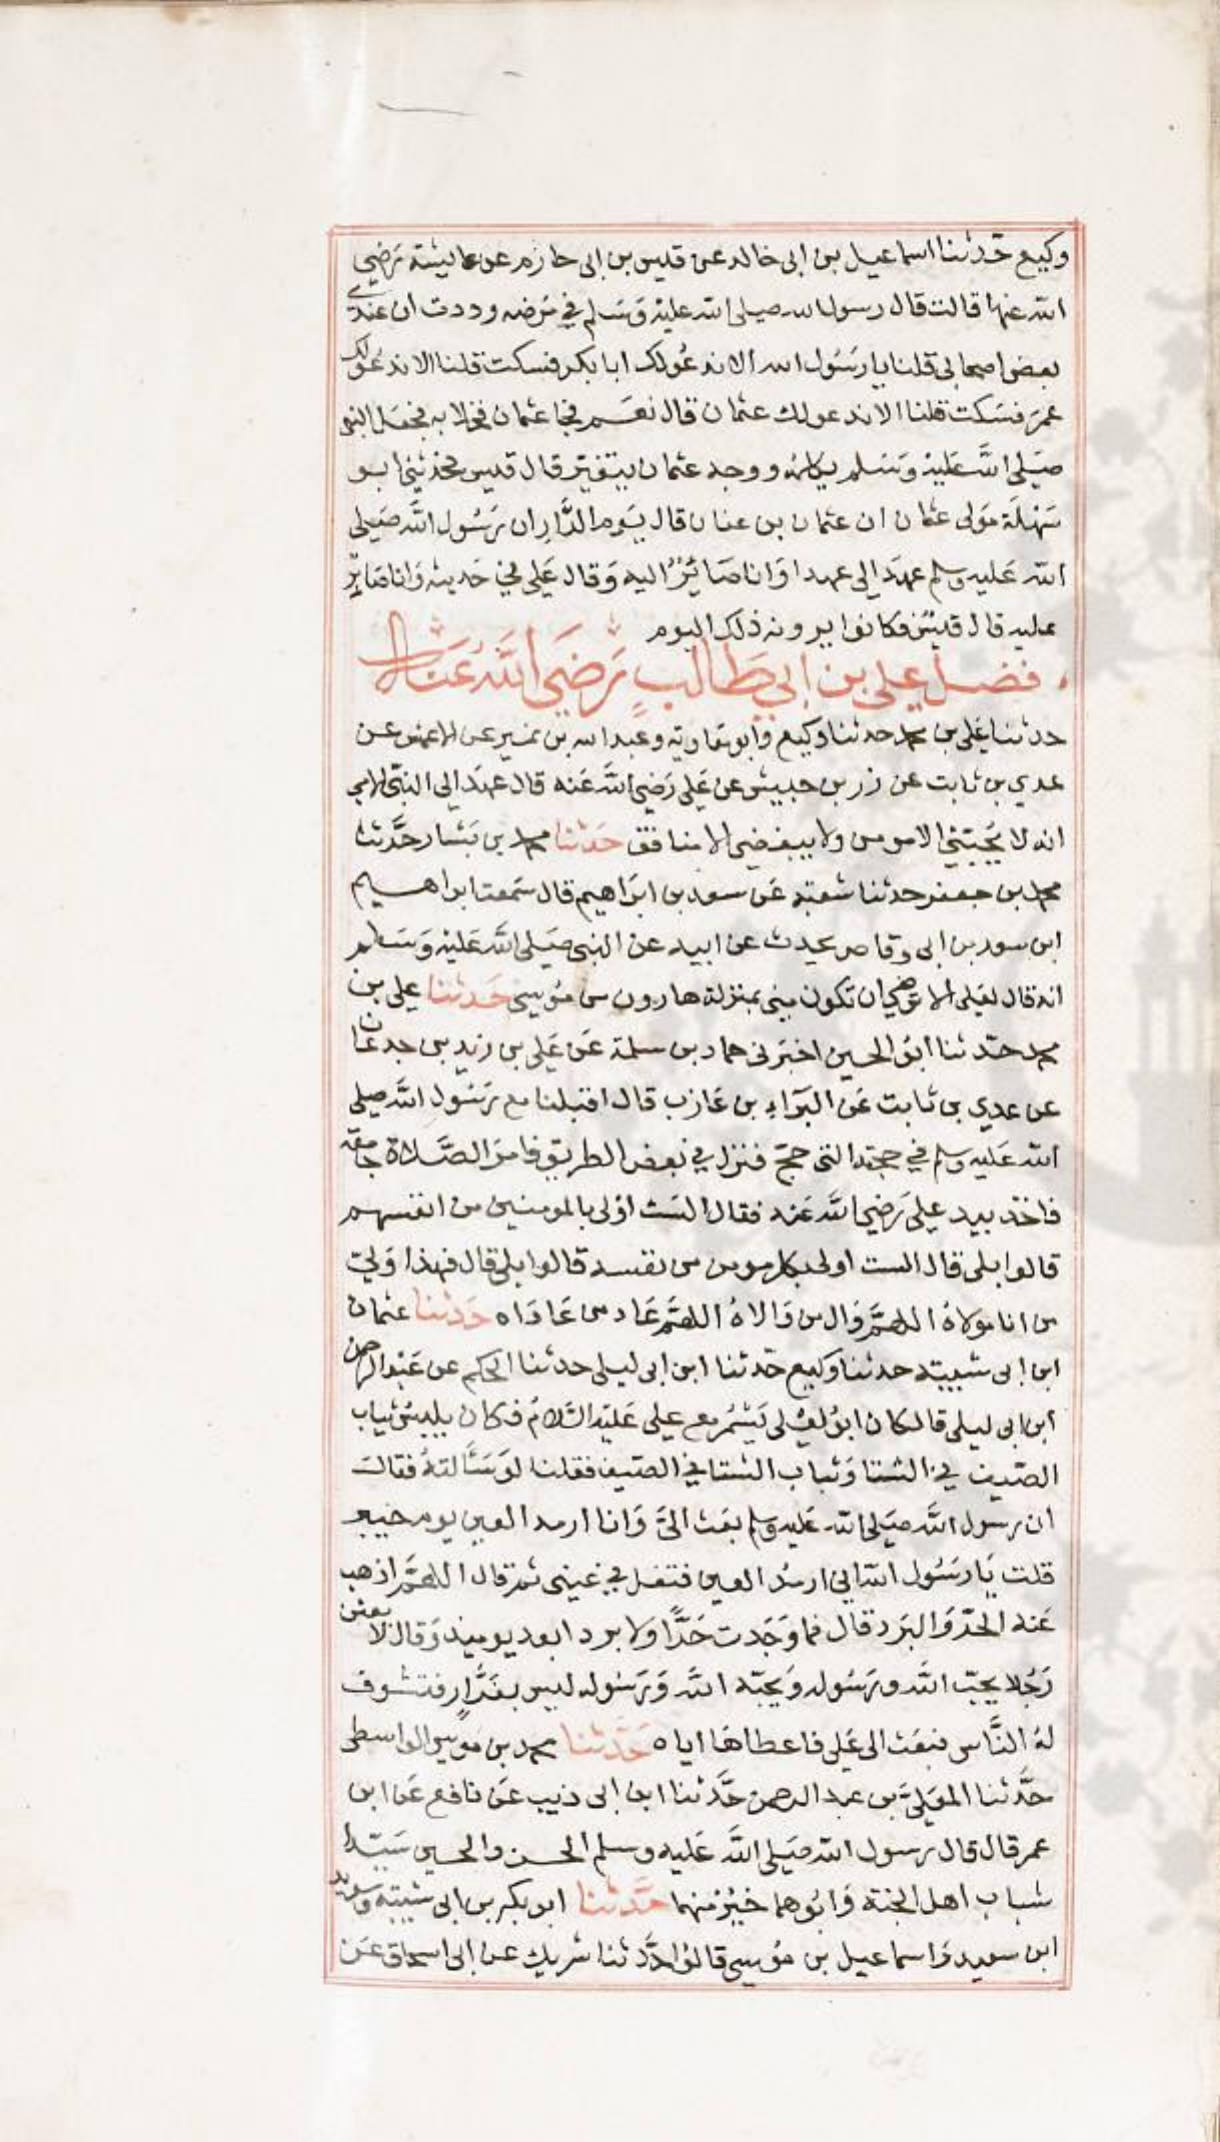 وكيع حدثنا اسماعيل بن ابى خالد عن قيس بن ابى حازم عن عايشة رضي
الله عنها قالت قال رسول الله صلى الله عليه وسلم في مرضه وددت ان عندي
بعض اصحابى قلنا يا رسول الله الا ندعو لك ابا بكر فسكت قلنا الا ندعو لك
عمر فسكت قلنا الا ندعو لك عثمان قال نعم فجا عثمان فخلا به فجعل النبى
صلى الله عليه وسلم يكلمه ووجه عثمان يتغير قال قيس فحدثنى ابو
سهلة مولى عثمان ان عثمان بن عفان قال يوم الدار ان رسول الله صلى
الله عليه وسلم عهد الى عهدا وانا صائر اليه وقال علي في حديثه وانا صابر
عليه قال قيس فكانوا يرونه ذلك اليوم
فضل علي بن ابي طالب رضي الله عنه
حدثنا علي بن محمد حدثنا وكيع وابو معاوية وعبد الله بن نمير عن الاعمش عن
عدي بن ثابت عن زر بن حبيش عن علي رضي الله عنه قال عهد الي النبي الامي
انه لا يحبني الا مومن ولا يبغضني الا منافق حدثنا محمد بن بشار حدثنا
محمد بن جعفر حدثنا شعبة عن سعد بن ابراهيم قال سمعت ابراهيم
ابن سعد بن ابى وقاص يحدث عن ابيه عن النبي صلى الله عليه وسلم
انه قال لعلى الا ترضى ان تكون منى بمنزلة هارون من موسى حدثنا علي بن
محمد حدثنا ابو الحسين اخبرنى حماد بن سلمة عن علي بن زيد بن جدعان
عن عدي بن ثابت عن البراء بن عازب قال اقبلنا مع رسول الله صلى
الله عليه وسلم في حجته التى حج فنزل في بعض الطريق فامر الصلاة جامعة
فاخذ بيد علي رضي الله عنه فقال الست اولى بالمومنين من انفسهم
قالوا بلى قال الست اولى بكل مومن من نفسه قالوا بلى قال فهذا ولي
من انا مولاه اللهم وال من والاه اللهم عاد من عاداه حدثنا عثمان
ابن ابى شيبة حدثنا وكيع حدثنا ابن ابى ليلى حدثنا الحكم عن عبد الرحمن
ابن ابى ليلى قال كان ابو ليلى يسمر مع علي عليه السلام فكان يلبس ثياب
الصيف في الشتا وثياب الشتا في الصيف فقلنا لو سألته فقال
ان رسول الله صلى الله عليه وسلم بعث الي وانا ارمد العين يوم خيبر
قلت يا رسول الله انى ارمد العين فتفل في عينى ثم قال اللهم اذهب
عنه الحر والبرد قال فما وجدت حرا ولا بردا بعد يوميذ وقال لابعثن
رجلا يحب الله ورسوله ويحبه الله ورسوله ليس بفرار فتشوف
له الناس فبعث الى علي فاعطاها اياه حدثنا محمد بن موسى الواسطى
حدثنا المعلى بن عبد الرحمن حدثنا ابن ابى ذيب عن نافع عن ابن
عمر قال قال رسول الله صلى الله عليه وسلم الحسن والحسين سيدا
شباب اهل الجنة وابوهما خير منهما حدثنا ابو بكر بن ابى شيبة وسويد
ابن سعيد واسماعيل بن موسى قالوا حدثنا شريك عن ابى اسحاق عن